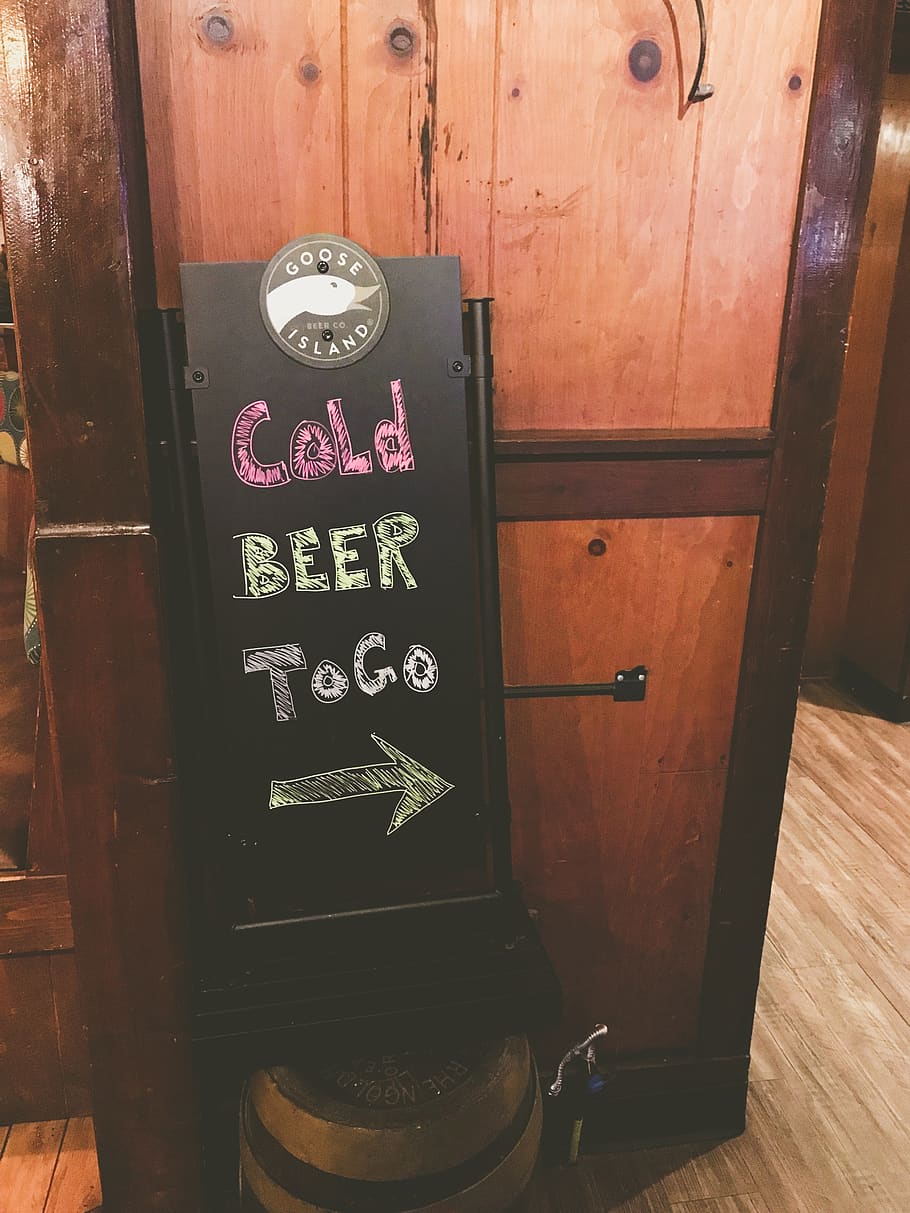 GOOSE
BEER CO.
ISLAND®
Cold
BEER
ToGo
RHEINGOLD